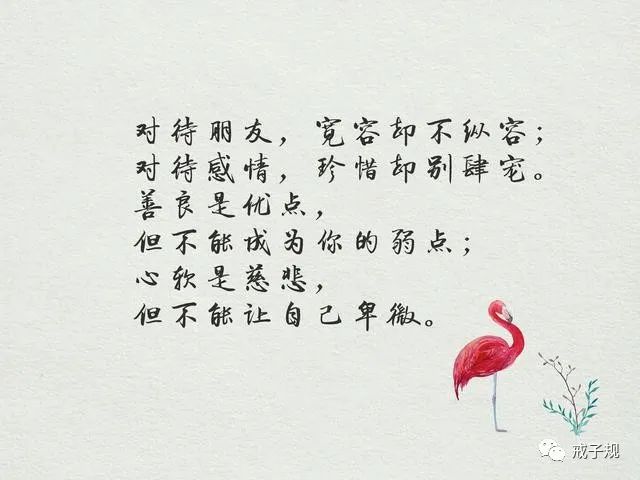 对待朋友，宽容却不纵容；
对待感情，珍惜却别肆宠。
善良是优点，
但不能成为你的弱点；
心软是慈悲，
但不能让自己卑微。
戒子规